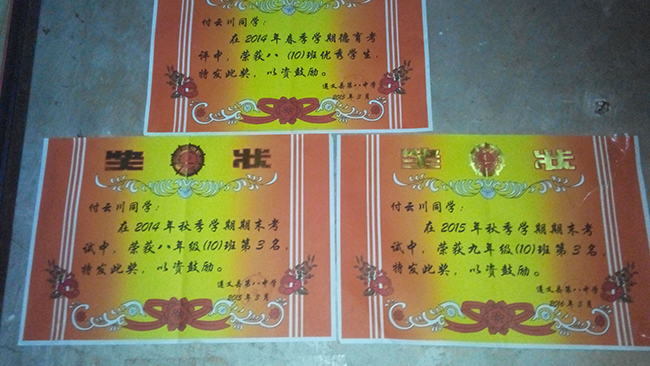 付云川同学:
在2014年春季学期德育考
评中,荣获八(10)班优秀学生,
特发此奖,以资鼓励。
遵义县第八中学
2015年3月
奖 状
付云川同学:
在2014年秋季学期期末考
试中,荣获八年级(10)班第3名,
特发此奖,以资鼓励。
遵义县第八中学
2015年3月
奖 状
付云川同学:
在2015年秋季学期期末考
试中,荣获九年级(10)班第3名,
特发此奖,以资鼓励。
遵义县第八中学
2016年3月